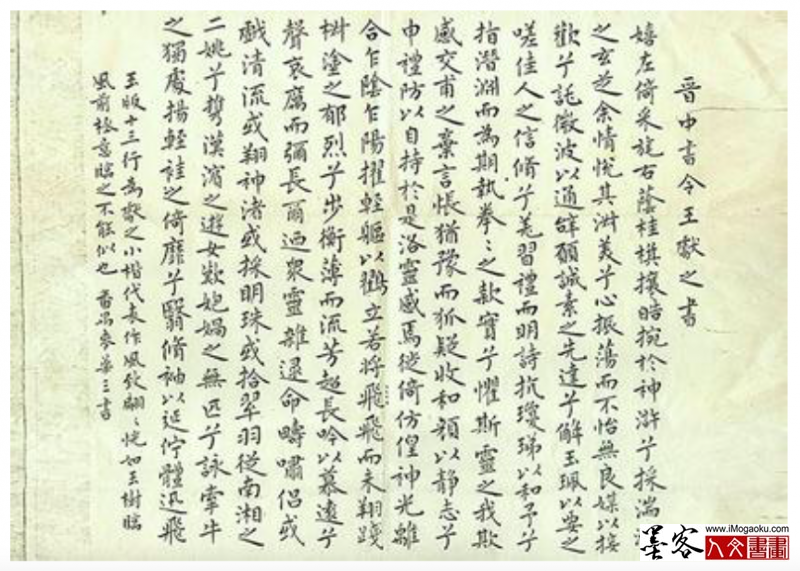 晋中書令王獻之書
嬉左倚采旄右蔭桂棋攘皓捥於神滸兮採湍
之玄芝余情悅其淑美兮心振蕩而不怡無良媒以接
歡兮託微波以通辭願誠素之先達兮解玉珮以要之
嗟佳人之信脩兮羌習禮而明詩抗瓊珶以和予兮
指潛淵而為期執拳〻之款實兮懼斯靈之我欺
感交甫之棄言悵猶豫而狐疑收和顏以静志兮
申禮防以自持於是洛靈感焉徙倚仿偟神光離
合乍陰乍陽擢輕軀以鶴立若將飛飛而未翔踐
椒塗之郁烈兮步衡薄而流芳超長吟以慕遠兮
聲哀厲而彌長爾迺衆靈雜遝命疇嘯侶或
戲清流或翔神渚或採明珠或拾翠羽從南湘之
二姚兮攜漢濱之遊女歎匏媧之無匹兮詠牽牛
之獨處揚輕袿之倚靡兮翳脩袖以延佇體迅飛
玉版十三行為獻之小楷代表作風致翩〻恍如玉樹臨
風前極意臨之不能似也 番禺麥華三書
www.iMogaoku.com
墨客人文書畫